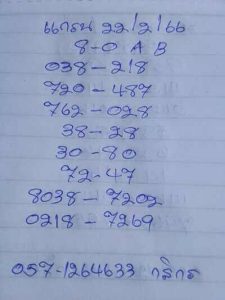 แกรน 22/2/66
8-0 A B
038-218
720-487
762-028
38-28
30-80
72-47
8038-7202
0218-7269
057-1264633 กสิกร